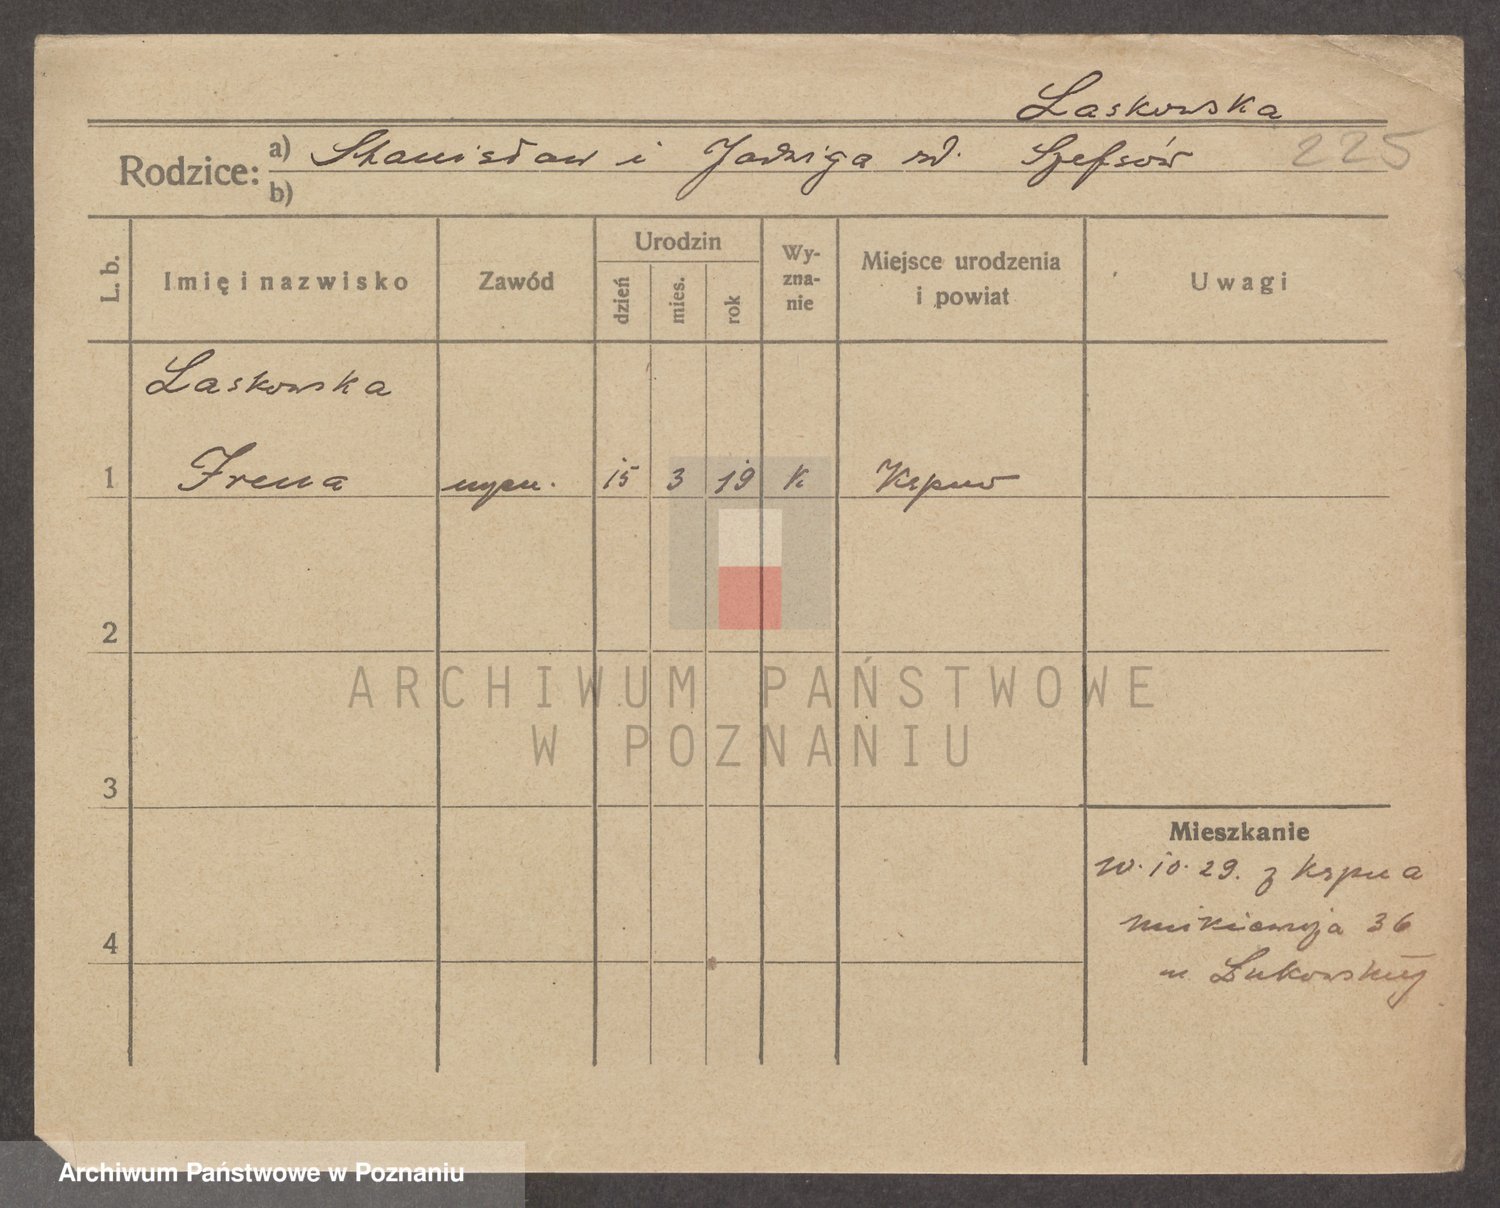 Laskowska
Rodzice: a) Stanisław i Jadwiga zd. Szefsów 225
b)
L. b. Imię i nazwisko Zawód Urodzin dzień mies. rok Wyzna-nie Miejsce urodzenia i powiat Uwagi
Laskowska
1 Irena 15 3 19 K Kępno
2
ARCHIWUM PAŃSTWOWE
W POZNANIU
3
Mieszkanie
10.29. z Kępna
36
4
Archiwum Państwowe w Poznaniu